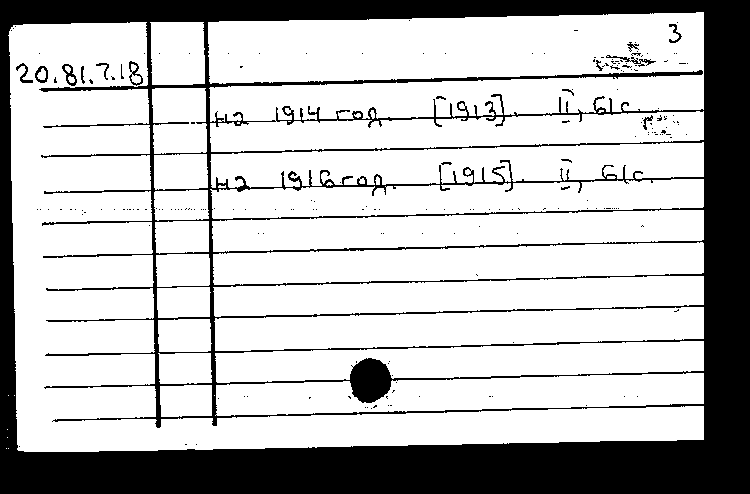 3
20.81.7.18
на 1914 год. [1913]. II, 61с.
на 1916 год. [1915]. II, 61с.